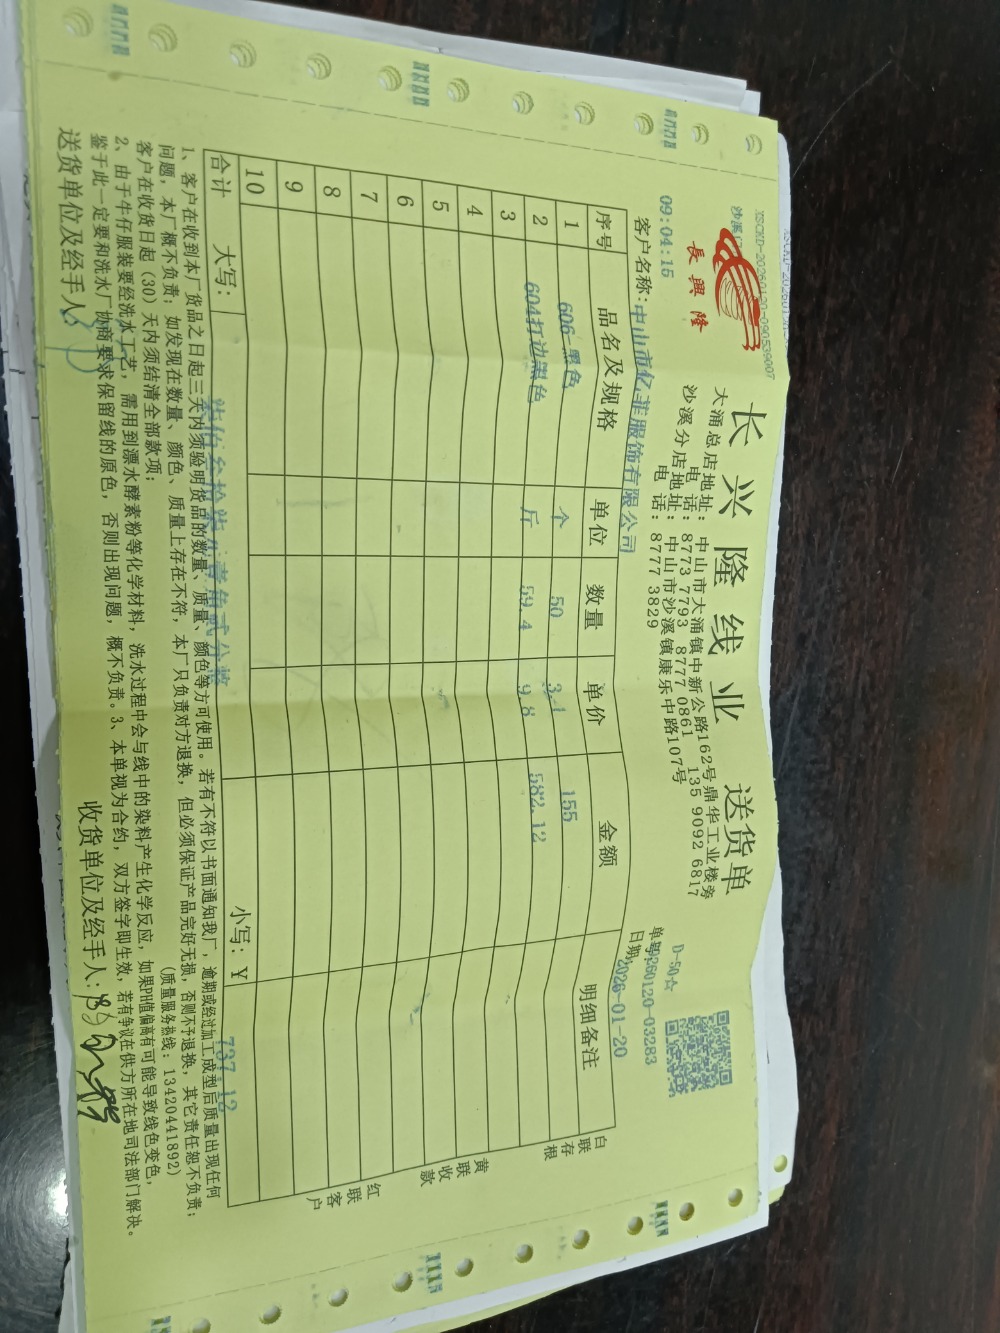 XSCKD-20260120-090539007
長興隆
长兴隆线业 送货单
大涌总店地址：中山市大涌镇中新公路162号鼎华工业楼旁
电话：8773 7793 8777 0861 135 9092 6817
沙溪分店地址：中山市沙溪镇康乐中路107号
电话：8777 3829
D-50☆
09:04:15
单号 20260120-03283
客户名称：中山市亿菲服饰有限公司
日期：2026-01-20
序号 品名及规格 单位 数量 单价 金额 明细备注
1 606-黑色 个 50 3.1 155
2 604打边黑色 斤 59.4 9.8 582.12
3
4
5
6
7
8
9
10
合计 大写：柒佰叁拾柒元壹角贰分整 小写：Y 737.12
白联存根
黄联收款
红联客户
1、客户在收到本厂货品之日起三天内须验明货品的数量、质量、颜色等方可使用。若有不符以书面通知我厂，逾期或经过加工成型后质量出现任何
问题，本厂概不负责；如发现在数量、颜色、质量上存在不符，本厂只负责对方退换，但必须保证产品完好无损，否则不予退换，其它责任恕不负责；
客户在收货日起（30）天内须结清全部款项； （质量服务热线：13420441892）
2、由于牛仔服装要经洗水工艺，需用到漂水酵素粉等化学材料，洗水过程中会与线中的染料产生化学反应，如果PH值偏高有可能导致线色变色，
鉴于此一定要和洗水厂协商要求保留线的原色，否则出现问题，概不负责。3、本单视为合约，双方签字即生效，若有争议在供方所在地司法部门解决。
送货单位及经手人： 收货单位及经手人：